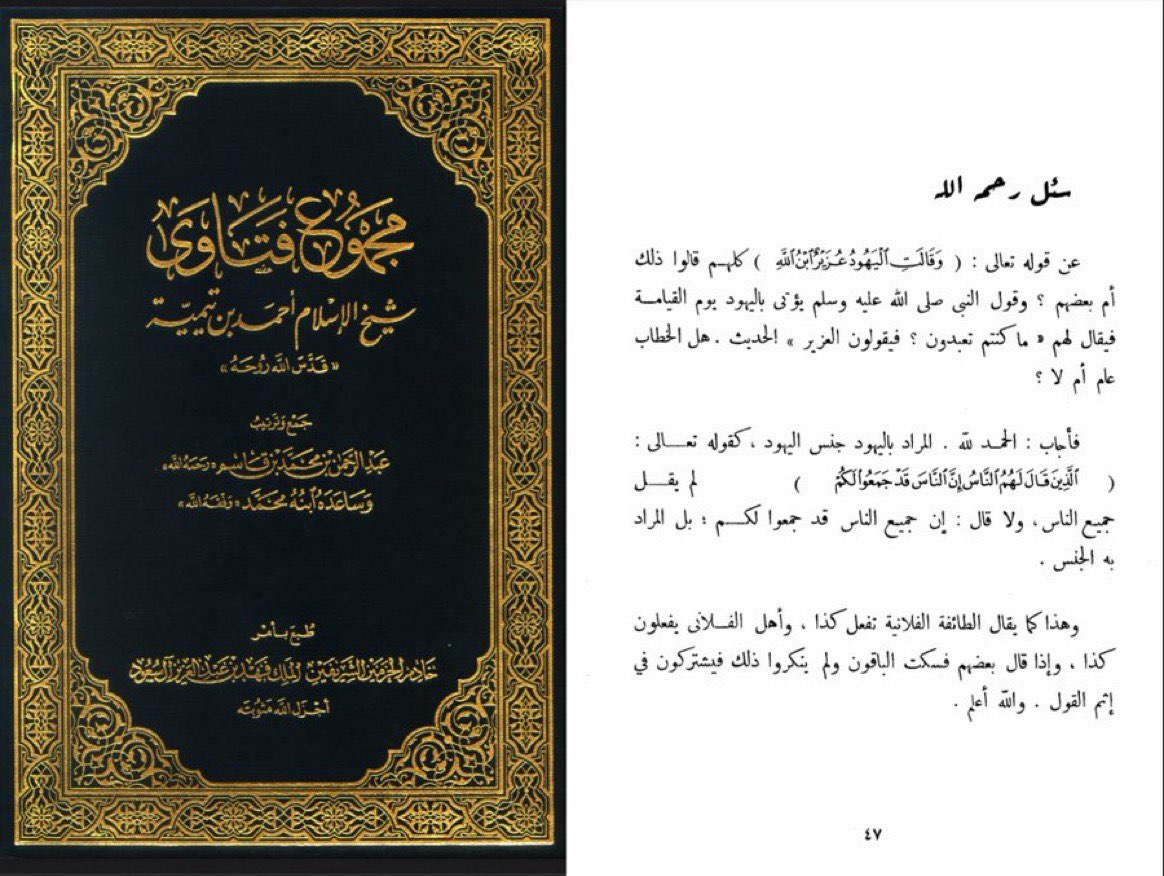 مجموع فتاوى
شيخ الإسلام أحمد بن تيمية
«قدس الله روحه»
جمع وترتيب
عبد الرحمن بن محمد بن قاسم «رحمه الله»
وساعده ابنه محمد «وفقه الله»
طبع بأمر
خادم الحرمين الشريفين الملك فهد بن عبد العزيز آل سعود
أجزل الله مثوبته
سئل رحمه الله
عن قوله تعالى : ( وَقَالَتِ ٱلْيَهُودُ عُزَيْرٌ ٱبْنُ ٱللَّهِ ) كلهم قالوا ذلك
أم بعضهم ؟ وقول النبي صلى الله عليه وسلم يؤتى باليهود يوم القيامة
فيقال لهم « ما كنتم تعبدون ؟ فيقولون العزير » الحديث . هل الخطاب
عام أم لا ؟
فأجاب : الحمد لله . المراد باليهود جنس اليهود ، كقوله تعـــالى :
( ٱلَّذِينَ قَالَ لَهُمُ ٱلنَّاسُ إِنَّ ٱلنَّاسَ قَدْ جَمَعُوا۟ لَكُمْ ) لم يقــل
جميع الناس ، ولا قال : إن جميع الناس قد جمعوا لكــم ؛ بل المراد
به الجنس .
وهذا كما يقال الطائفة الفلانية تفعل كذا ، وأهل الفــلانى يفعلون
كذا ، وإذا قال بعضهم فسكت الباقون ولم ينكروا ذلك فيشتركون في
إثم القول . والله أعلم .
٤٧